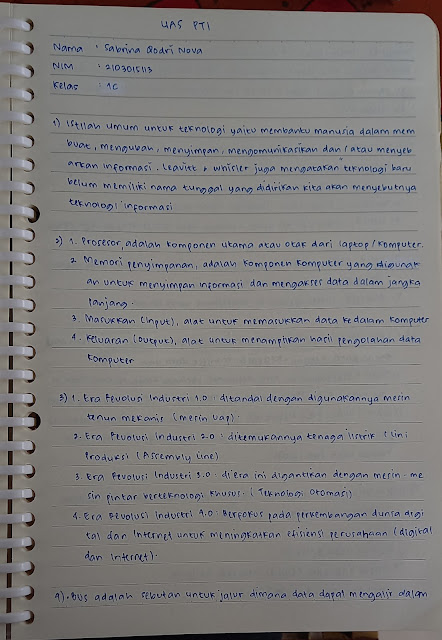 UAS PTI
Nama : Sabrina Qodri Nova
NIM : 2103015113
Kelas : 1C
1) Istilah umum untuk teknologi yaitu membantu manusia dalam mem
buat, mengubah, menyimpan, mengomunikasikan dan / atau menyeb
arkan informasi. Leavitt & whisler juga mengatakan "teknologi baru
belum memiliki nama tunggal yang didirikan kita akan menyebutnya
teknologi informasi
2) 1. Prosesor, adalah komponen utama atau otak dari laptop / komputer.
2. Memori penyimpanan, adalah komponen komputer yang digunak
an untuk menyimpan informasi dan mengakses data dalam jangka
panjang.
3. Masukkan (input), alat untuk memasukkan data kedalam komputer
4. Keluaran (output), alat untuk menampilkan hasil pengolahan data
komputer
3) 1. Era Revolusi Industri 1.0 : ditandai dengan digunakannya mesin
tenun mekanis (mesin uap).
2. Era Revolusi Industri 2.0 : ditemukannya tenaga listrik (lini
Produksi (Assembly Line)
3. Era Revolusi Industri 3.0 : diera ini digantikan dengan mesin-me
sin pintar berteknologi khusus. (Teknologi Otomasi)
4. Era Revolusi Industri 4.0 : Berfokus pada perkembangan dunia digi
tal dan Internet untuk meningkatkan efisiensi perusahaan (digital
dan Internet).
4) • Bus adalah sebutan untuk jalur dimana data dapat mengalir dalam